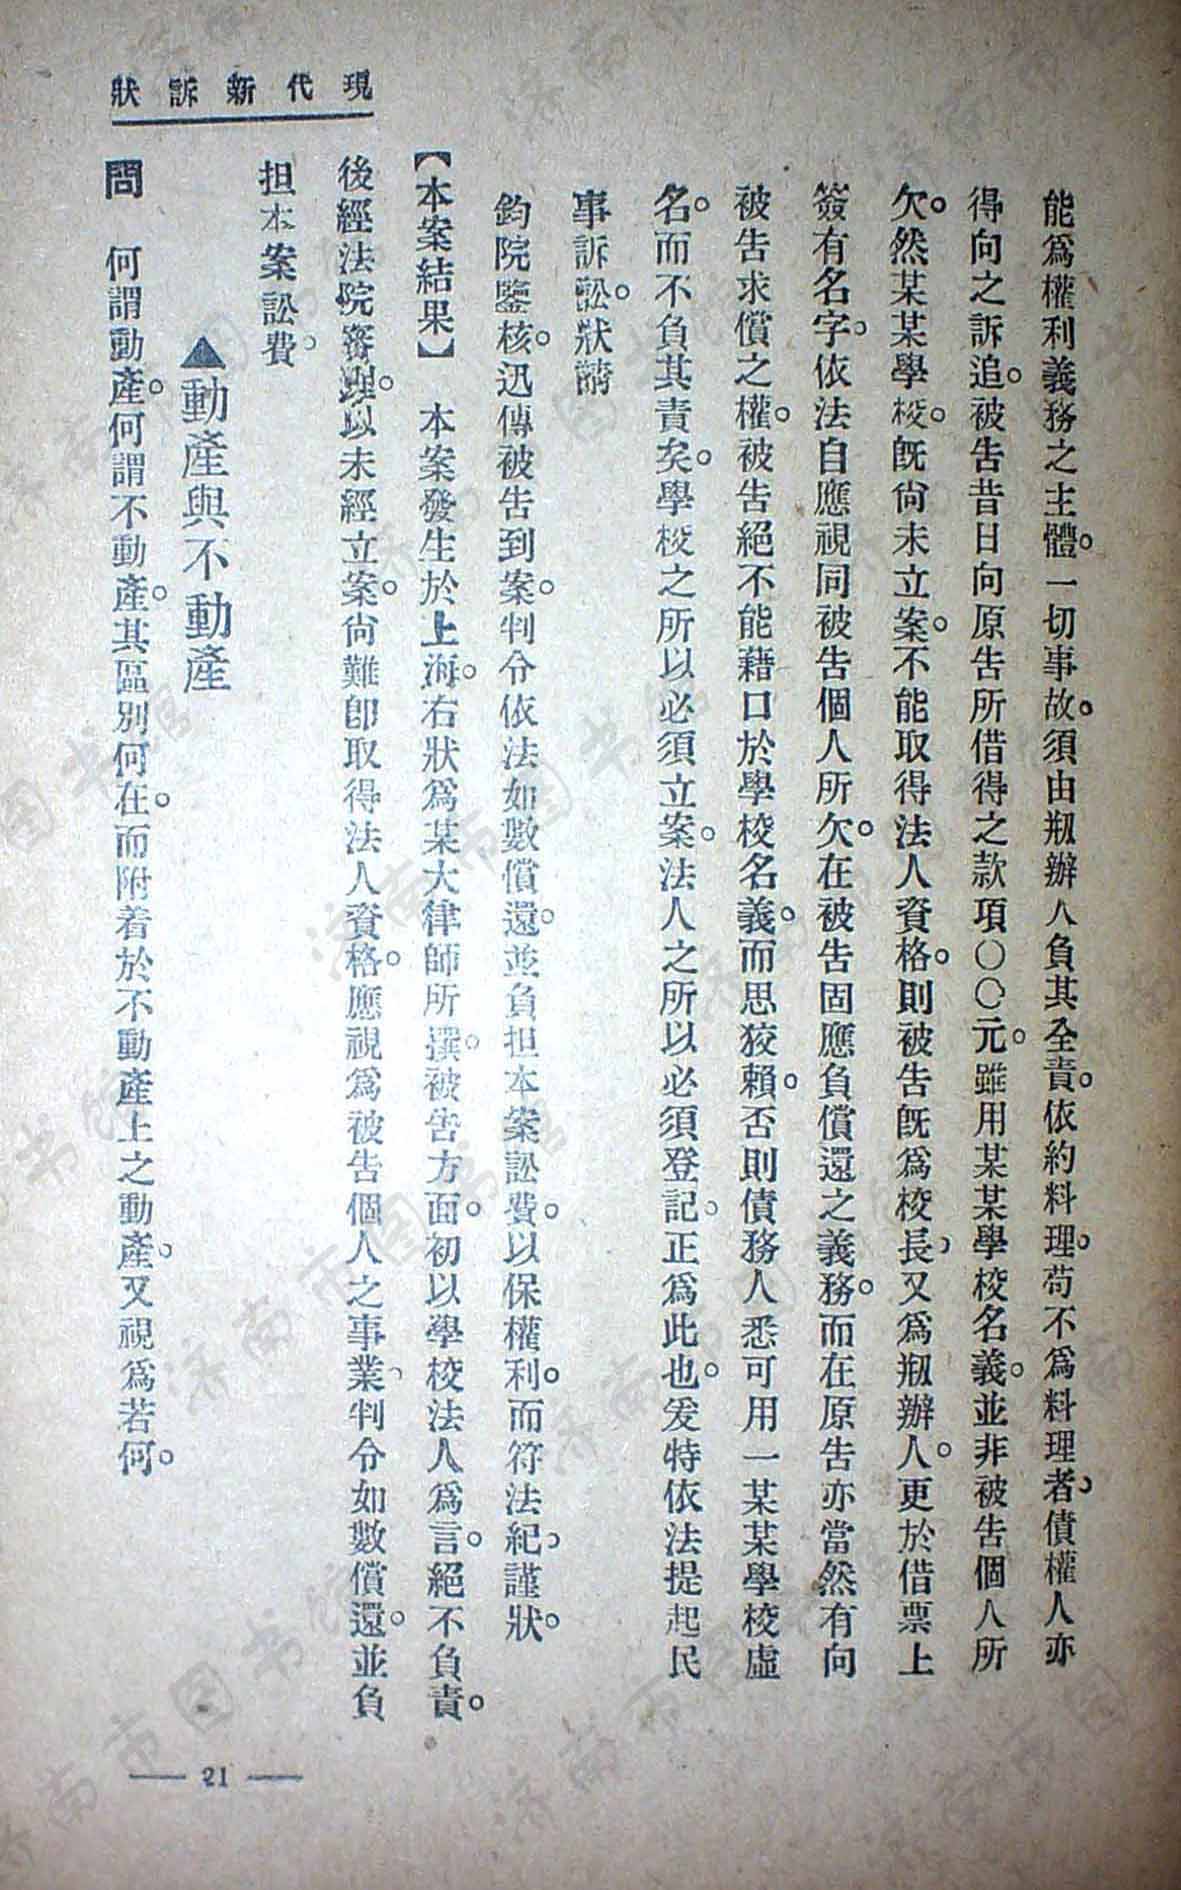 現代新訴狀
能爲權利義務之主體。一切事故。須由剏辦人負其全責。依約料理。苟不爲料理者。債權人亦
得向之訴追。被告昔日向原告所借得之款項〇〇元。雖用某某學校名義。並非被告個人所
欠。然某某學校。旣尙未立案。不能取得法人資格。則被告旣爲校長。又爲剏辦人。更於借票上
簽有名字。依法自應視同被告個人所欠。在被告固應負償還之義務。而在原告亦當然有向
被告求償之權。被告絕不能藉口於學校名義。而思狡賴。否則債務人悉可用一某某學校虛
名。而不負其責矣。學校之所以必須立案。法人之所以必須登記。正爲此也。爰特依法提起民
事訴訟。狀請
鈞院鑒核。迅傳被告到案。判令依法如數償還。並負担本案訟費。以保權利。而符法紀。謹狀。
【本案結果】　本案發生於上海。右狀爲某大律師所撰。被告方面。初以學校法人爲言。絕不負責。
後經法院審理。以未經立案。尙難卽取得法人資格。應視爲被告個人之事業。判令如數償還。並負
担本案訟費。
▲動產與不動產
問　何謂動產。何謂不動產。其區別何在。而附着於不動產上之動產。又視爲若何。
— 21 —
济南市图书馆